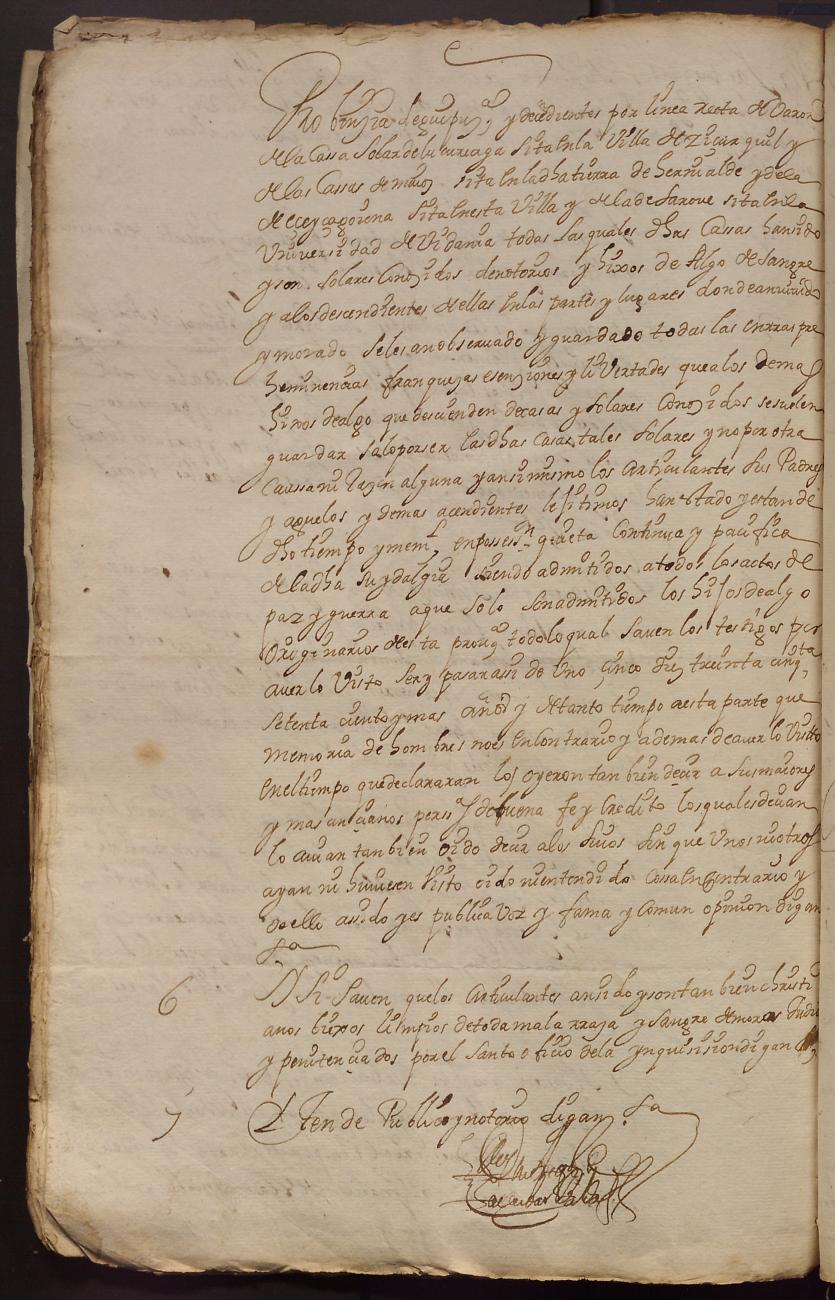 Probinçia de guipuzª y decendientes por linea recta de Varon
de la Cassa Solar de lucuriaga Sita en la Villa de Ziçurquil y
de las Cassas de sita en la dha tierra de hernialde y de la
de eceyzagoirena Sita en esta Villa y de la de Saroue sita en la
Vniversidad de Vidania todas las quales dhas Cassas han sido
y son solares Conoçidos de notorios y hixos de Algo de Sangre
y a los descendientes de ellas en las partes y lugares donde an uiuido
y morado se les an obseruado y guardado todas las onrras pre
heminencias franqueças esençiones y liVertades que a los demas
hixos de algo que desçienden de casas y solares Conoçidos se suelen
guardar solo por ser las dhas casas tales solares y no por otra
caussa ni raçon alguna y ansi mismo los articulantes sus Padres
y aguelos y demas acendientes lexitimos han estado y estan de
dho tiempo y memª en possessn quieta Continua y pacifica
de la dha hydalguia siendo admitidos a todos los actos de
paz y guerra a que solo son admitidos los hijos de algo
originarios de esta prouª todo lo qual sauen los testigos por
auerlo Visto ser y pasar assi de uno çinco diez treinta cinqta
setenta ciento y mas años y de tanto tiempo a esta parte que
memoria de hombres no es en contrario y ademas de auerlo Visto
en el tiempo que declararan los oyeron tan bien deçir a sus maiores
y mas ançianos persas de buena fe y credito los quales deçian
lo auian tan bien oido deçir a los suios sin que Unos ni otros
ayan ni huuiesen Visto oido ni entendido Cossa en Contrario y
de ello a sido y es publica Voz y fama y comun opinion digan
sa
6 Si Sauen que los articulantes an sido y son tan bien christi
anos biexos limpios de toda mala rraça y sangre de moros Judios
y penitençiados por el santo ofiçio de la ynquisision digan
7 Iten de Publico y notorio digan sa